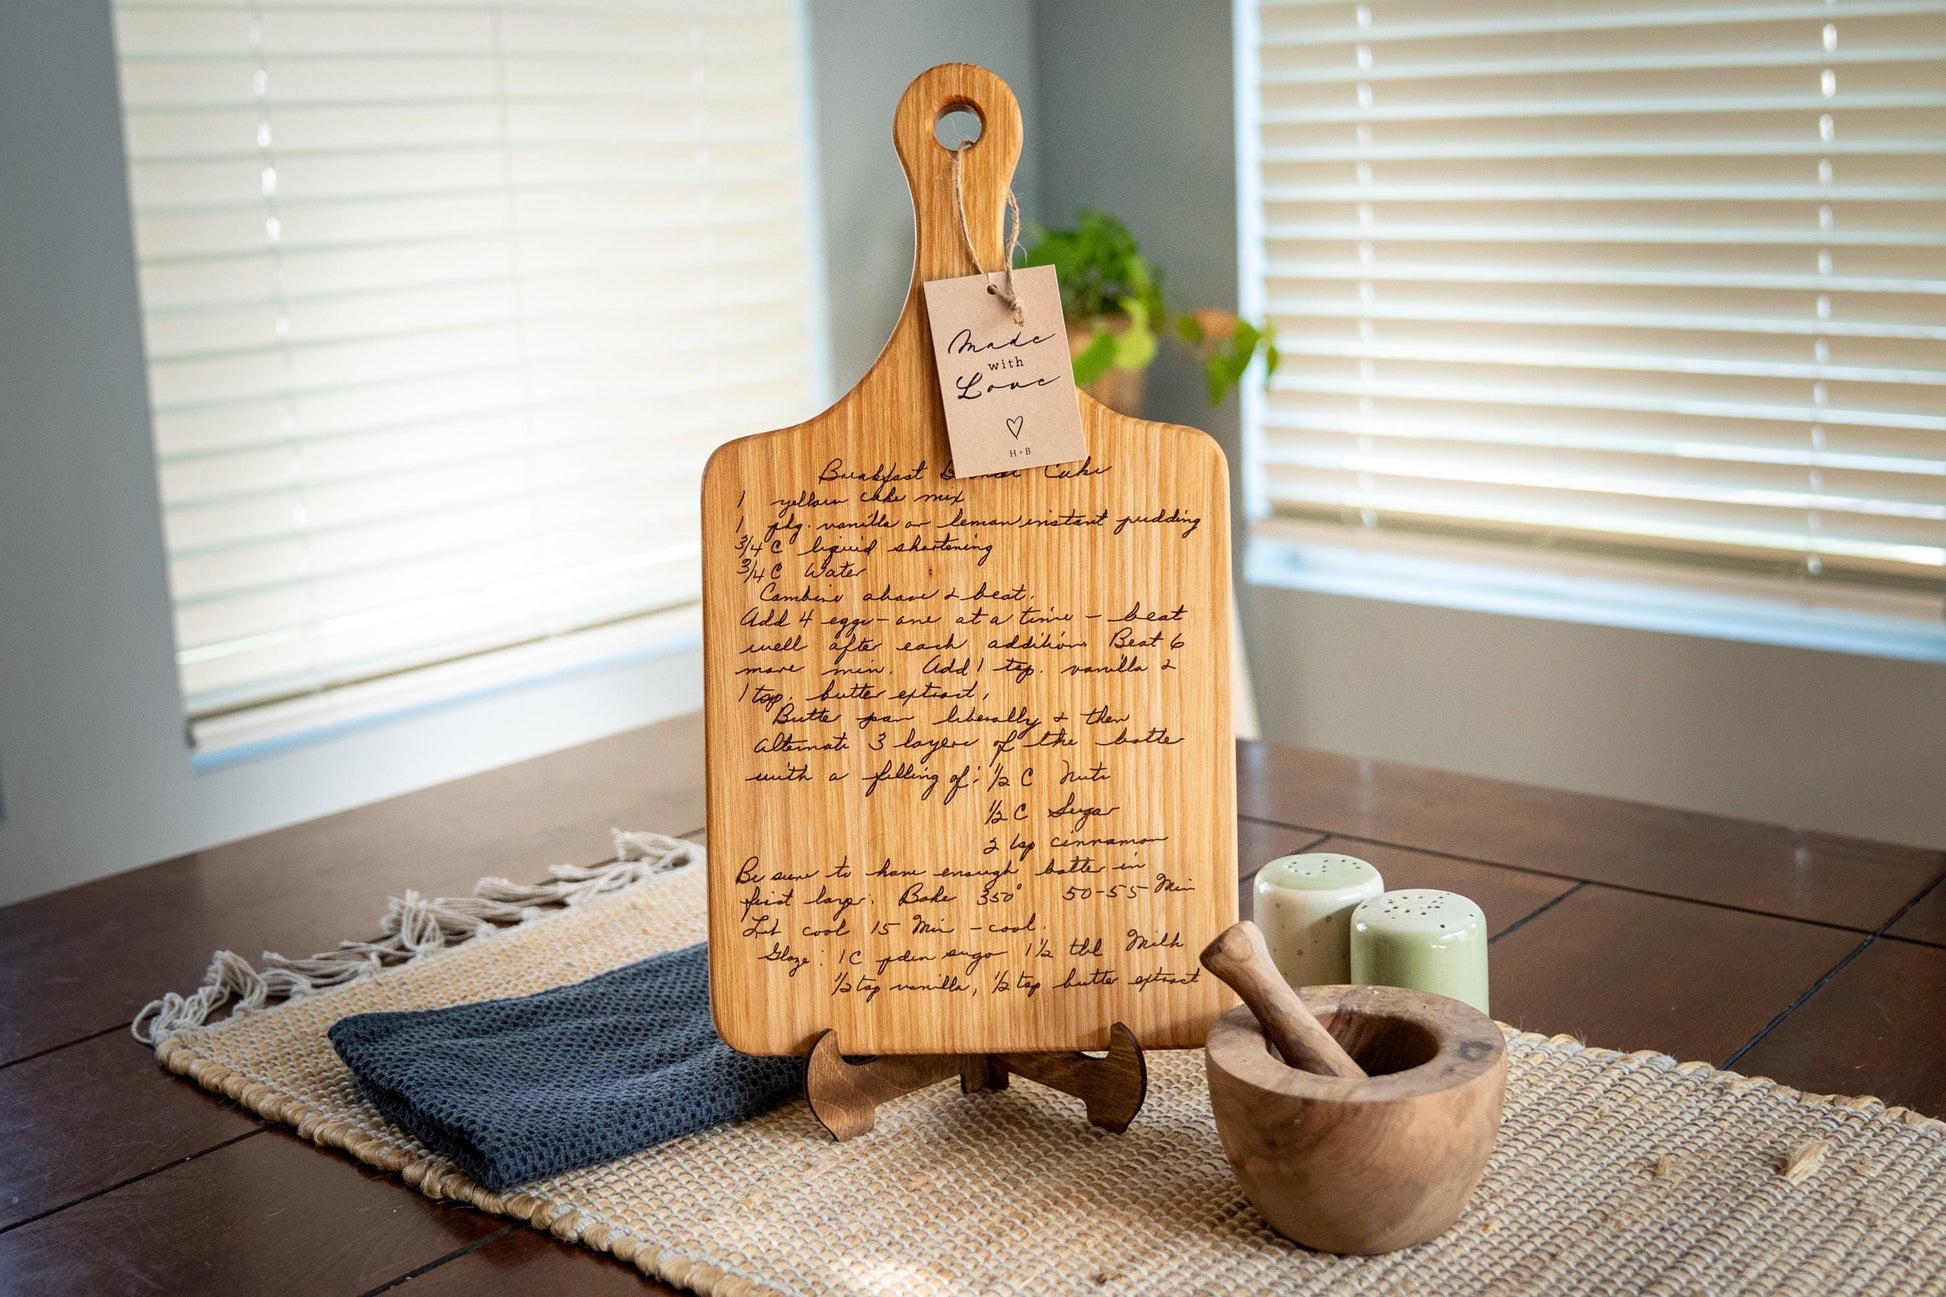 Made
with
Love
H+B
Breakfast Cake
1 yellow cake mix
1 pkg. vanilla or lemon instant pudding
3/4 C liquid shortening
3/4 C Water
Combine above & beat.
Add 4 eggs - one at a time - beat
well after each addition. Beat 6
more min. Add 1 tsp. vanilla &
1 tsp. butter extract.
Butter pan liberally & then
alternate 3 layers of the batter
with a filling of: 1/2 C Nuts
1/2 C Sugar
2 tsp cinnamon
Be sure to have enough batter in
first layer. Bake 350° 50-55 Min
Let cool 15 Min - cool.
Glaze: 1C pden sugar 1 1/2 tbl Milk
1/2 tsp vanilla, 1/2 tsp butter extract